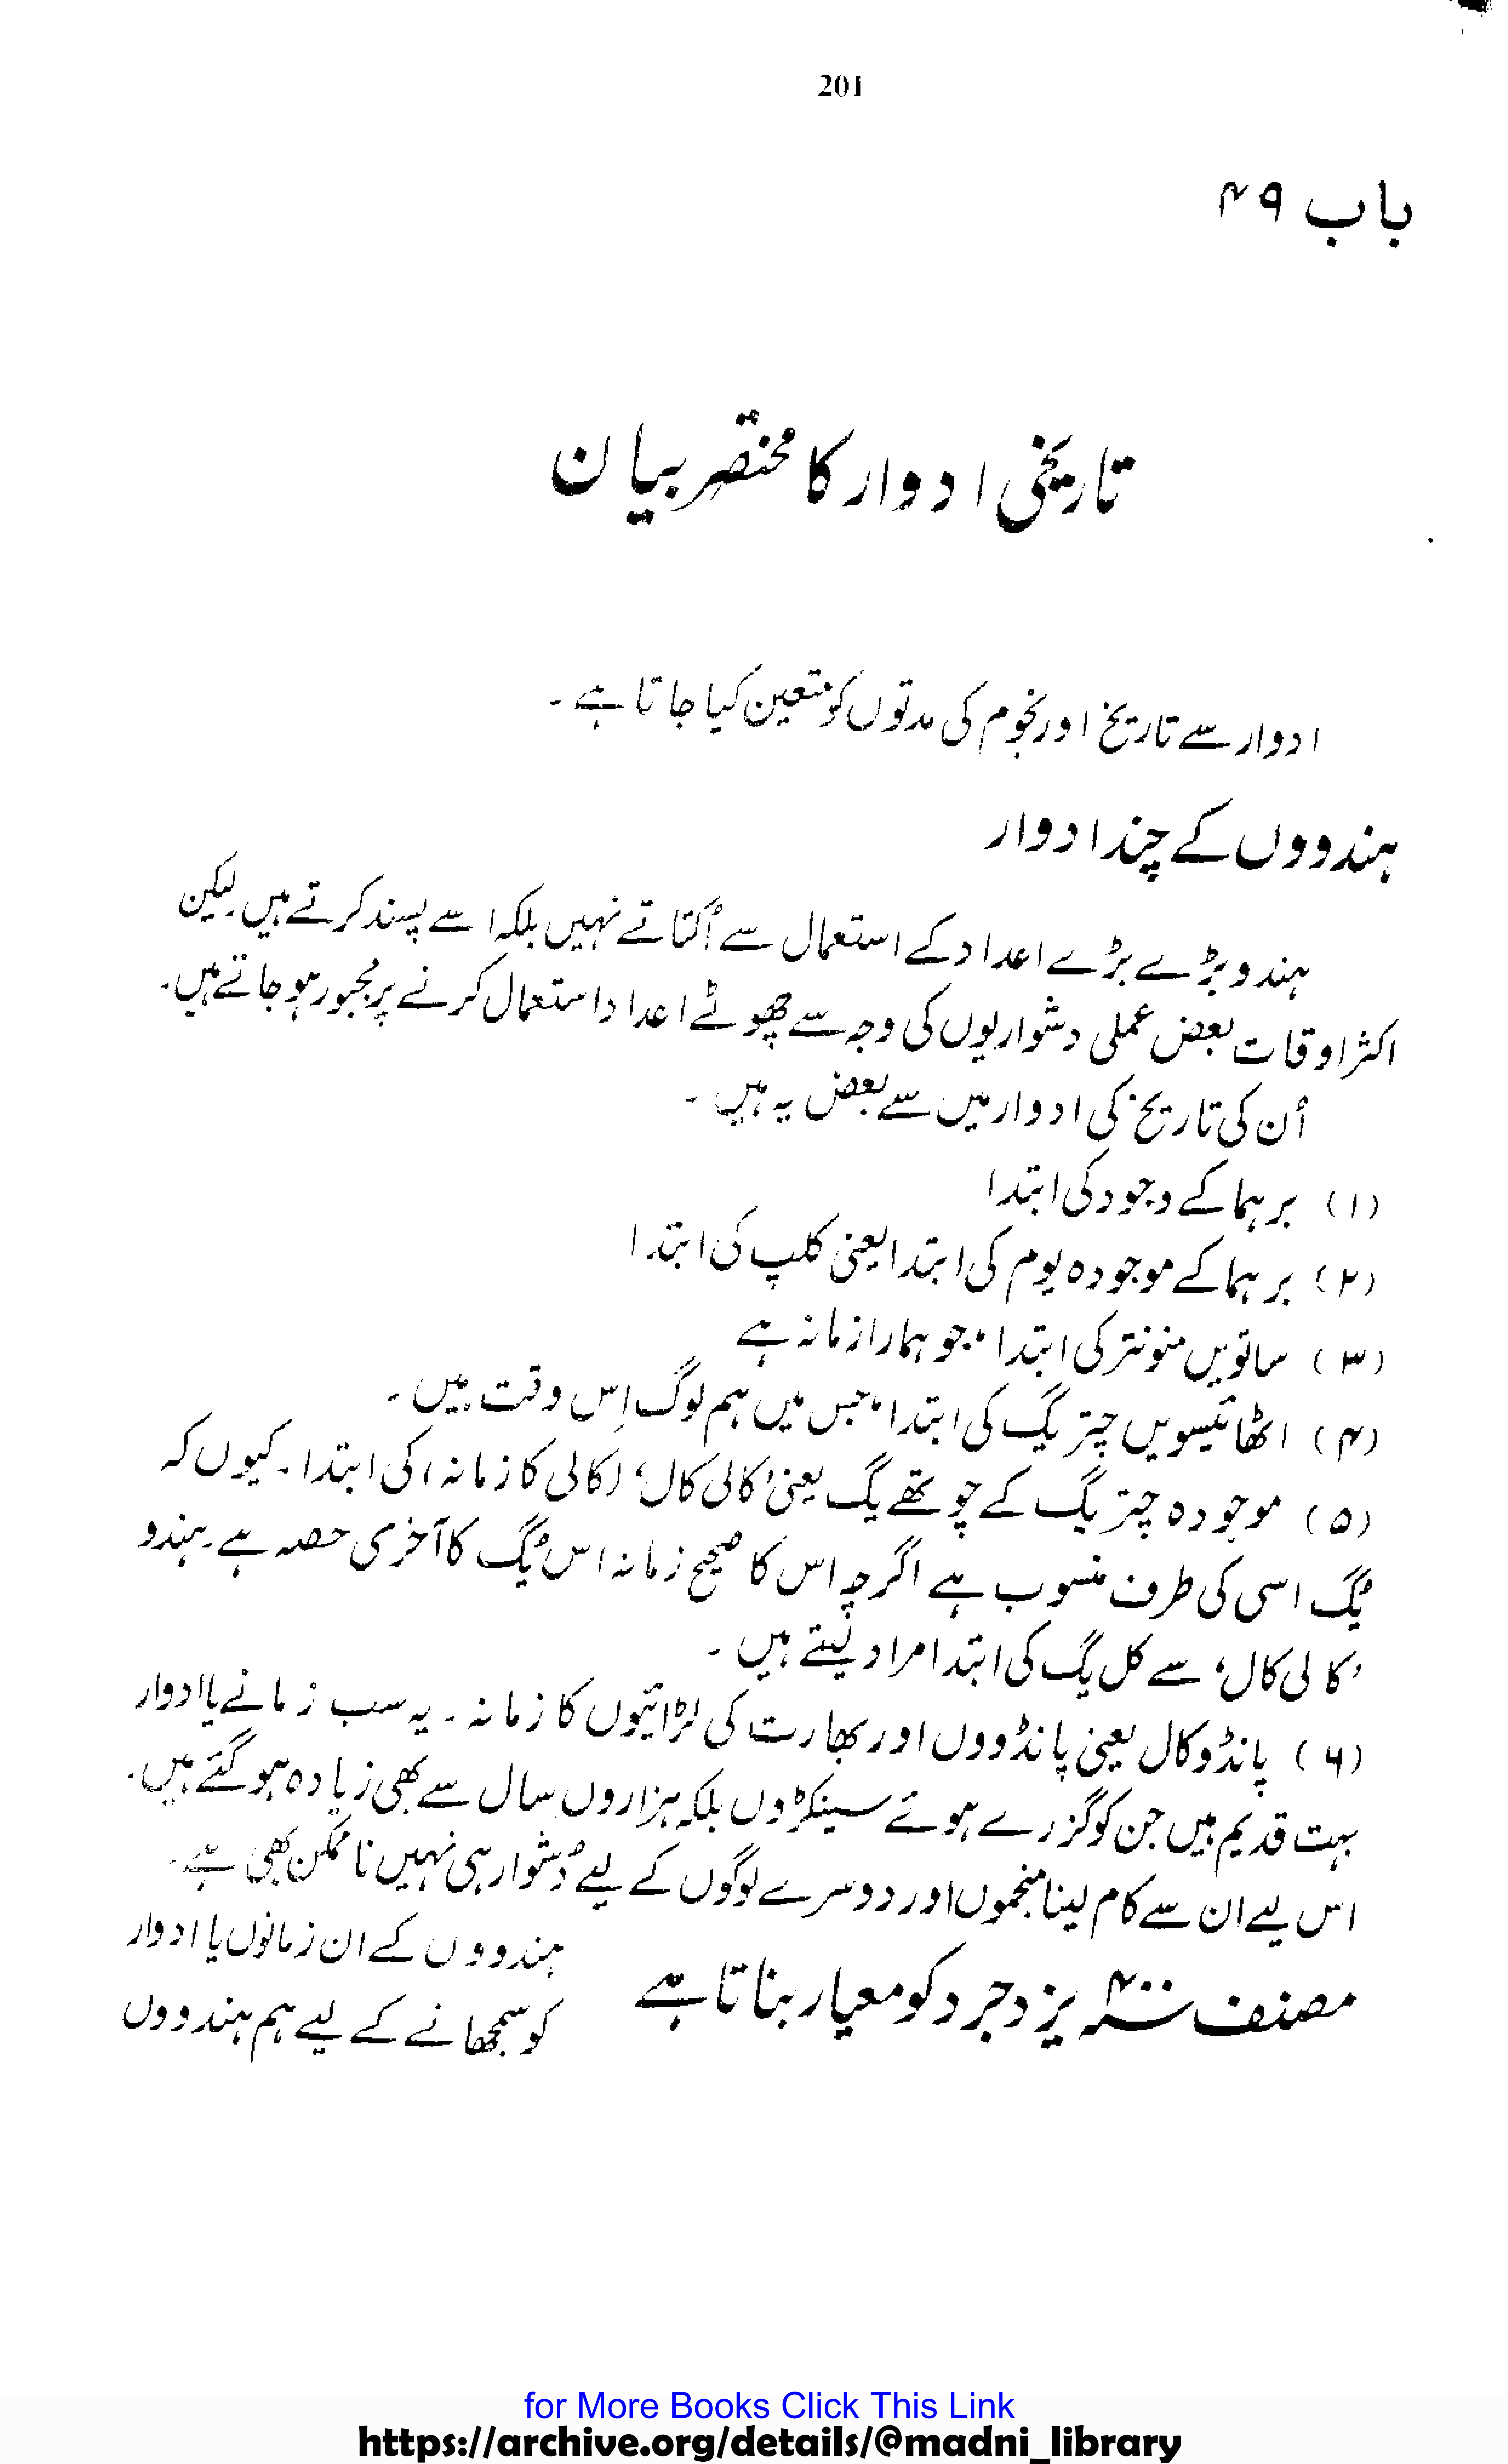 201
باب ۴۹
تاریخی ادوار کا مختصر بیان
ادوار سے تاریخ اور نجوم کی مدتوں کو متعین کیا جاتا ہے۔
ہندووں کے چند ادوار
ہندو بڑے بڑے اعداد کے استعمال سے اُکتاتے نہیں بلکہ اسے پسند کرتے ہیں۔ لیکن
اکثر اوقات بعض عملی دشواریوں کی وجہ سے چھوٹے اعداد استعمال کرنے پر مجبور ہو جاتے ہیں۔
اُن کی تاریخ کی ادوار میں سے بعض یہ ہیں۔
(۱) برہما کے وجود کی ابتدا
(۲) برہما کے موجودہ یوم کی ابتدا یعنی کلپ کی ابتدا
(۳) ساتویں منونتر کی ابتدا، جو ہمارا زمانہ ہے
(۴) اٹھائیسویں چتریگ کی ابتدا، جس میں ہم لوگ اِس وقت ہیں۔
(۵) موجودہ چتریگ کے چوتھے یگ یعنی 'کالی کال' (کالی کا زمانہ) کی ابتدا۔ کیوں کہ
یُگ اسی کی طرف منسوب ہے اگرچہ اس کا صحیح زمانہ اس یُگ کا آخری حصہ ہے۔ ہندو
'کالی کال' سے کل یگ کی ابتدا مراد لیتے ہیں۔
(۶) پانڈوکال یعنی پانڈووں اور بھارت کی لڑائیوں کا زمانہ۔ یہ سب زمانے یا ادوار
بہت قدیم ہیں جن کو گزرے ہوئے سینکڑوں بلکہ ہزاروں سال سے بھی زیادہ ہو گئے ہیں۔
اس لیے ان سے کام لینا منجموں اور دوسرے لوگوں کے لیے دُشوار ہی نہیں ناممکن بھی ہے۔
مصنف ۴۰۰؁ یزدجرد کو معیار بناتا ہے
ہندووں کے ان زمانوں یا ادوار
کو سمجھانے کے لیے ہم ہندووں
for More Books Click This Link
https://archive.org/details/@madni_library